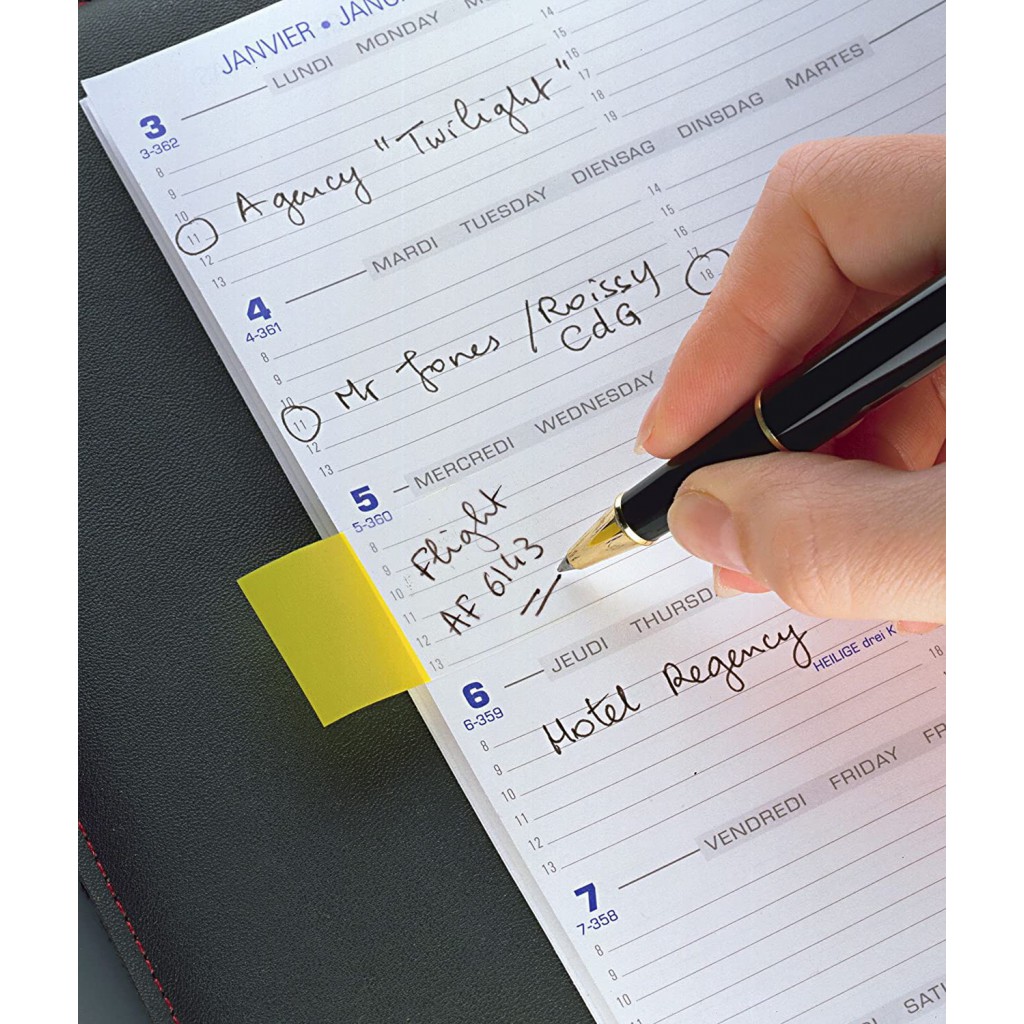 JANVIER • JANU
LUNDI MONDAY M
3
3-362
8
9
10
11
12
13
14
15
16
17
18
19
Agency "Twilight"
MARDI TUESDAY DIENSTAG DINSDAG MARTES
4
4-361
8
9
10
11
12
13
14
15
16
17
18
Mr Jones / Roissy
CdG
MERCREDI WEDNESDAY
5
5-360
8
9
10
11
12
13
Flight
AF 6143
JEUDI THURSD
6
6-359
HEILIGE drei K
8
9
10
11
12
13
18
Hotel Regency
VENDREDI FRIDAY FR
7
7-358
8
9
10
11
DI SATU